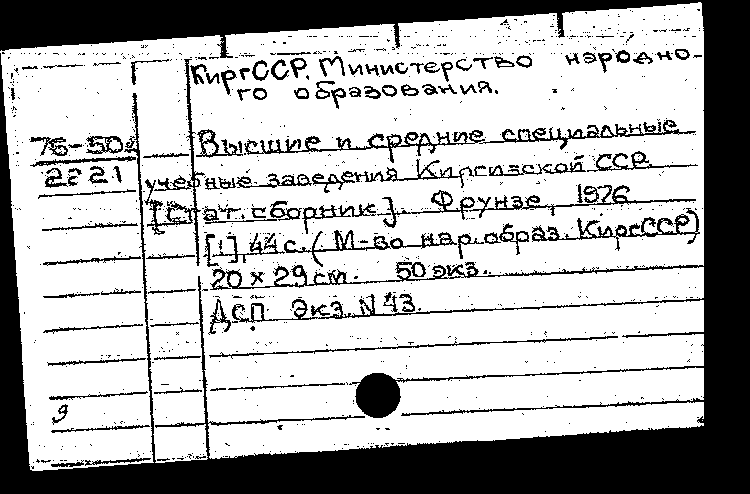 КиргССР. Министерство народно-
го образования.
76-50
2221
Высшие и средние специальные
учебные заведения Киргизской ССР.
[Стат. сборник]. Фрунзе, 1976
[1], 44 с. (М-во нар. образ. КиргССР)
20 x 29 cm. 50 экз.
ДСП Экз. N 43.
9